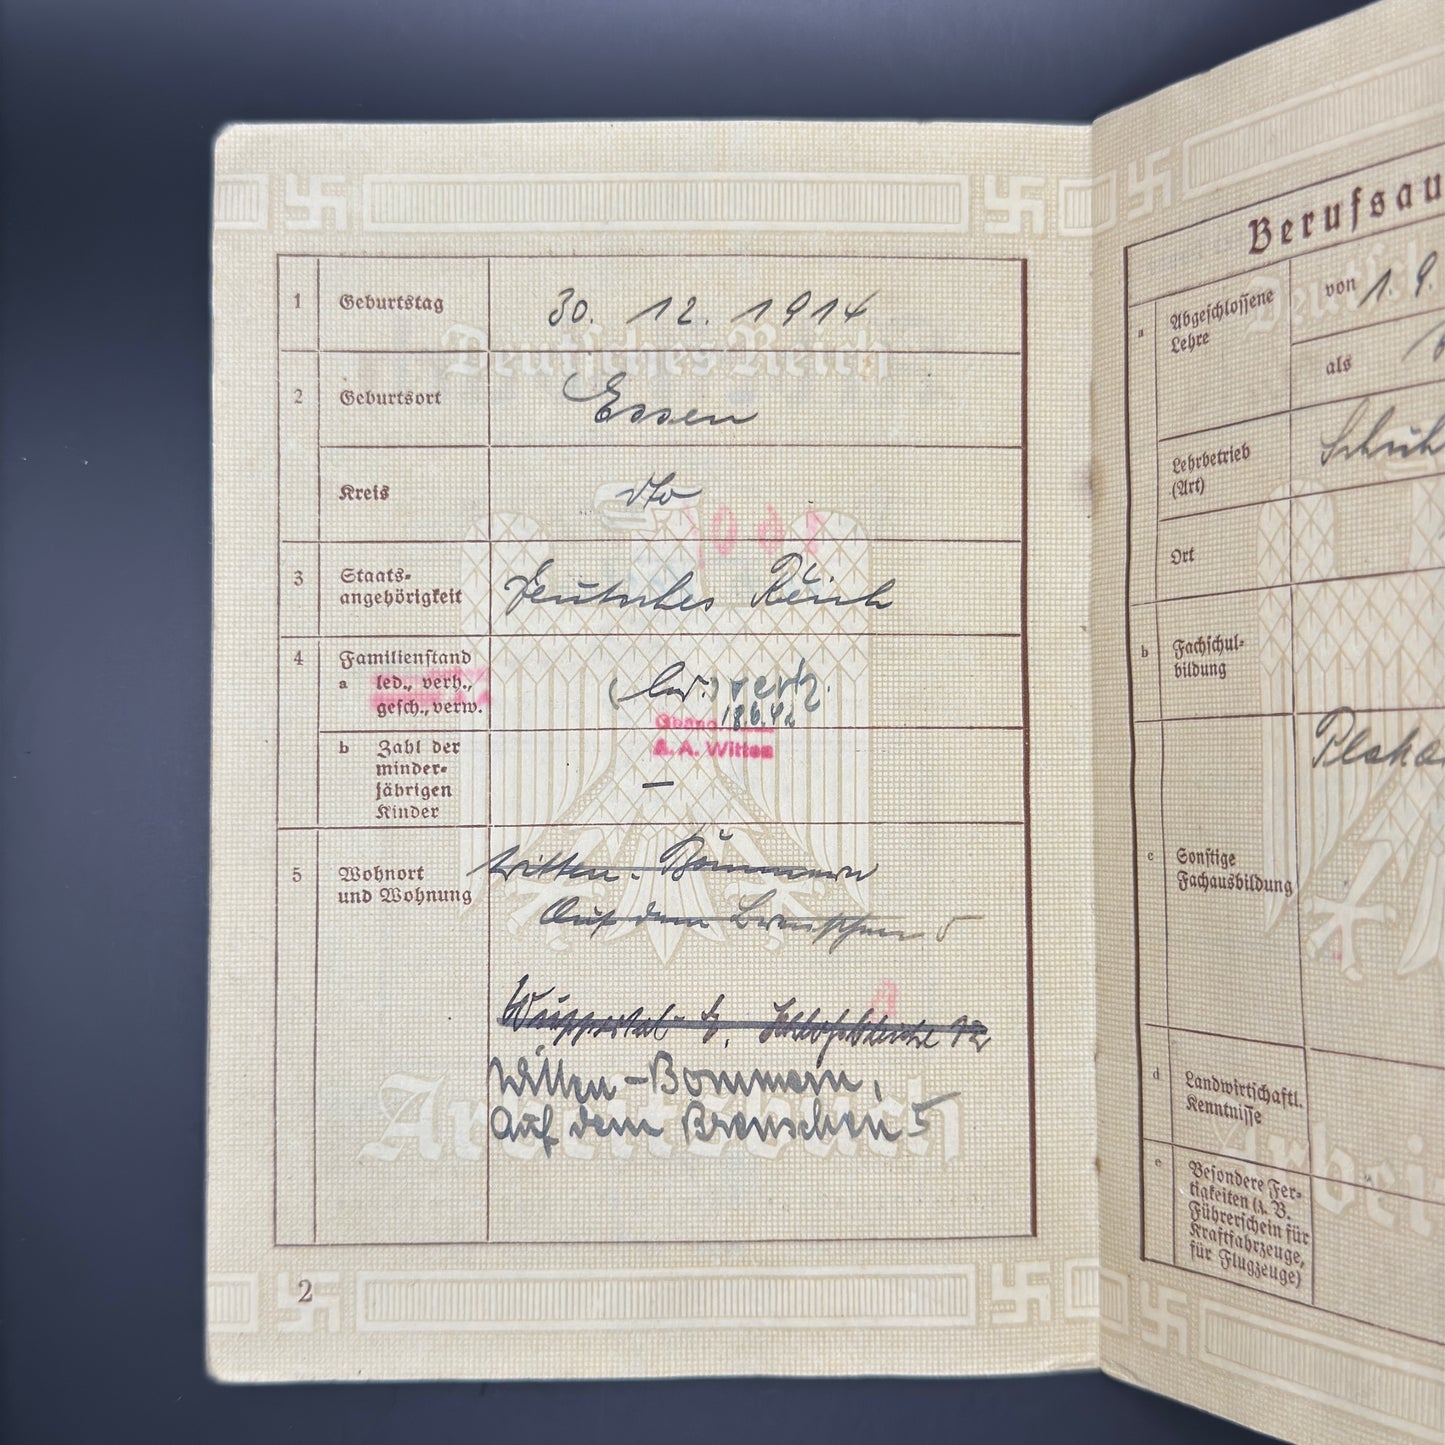 1 Geburtstag 30. 12. 1914
Deutsches Reich
2 Geburtsort Essen
Kreis dto
3 Staats-
angehörigkeit Deutsches Reich
4 Familienstand
a led., verh.,
gesch., verw. (led.) verh.
18.6.42
A. A. Witten
b Zahl der
minder-
jährigen
Kinder —
5 Wohnort
und Wohnung
Witten-Bommern
Auf dem Brenschen 5
Wuppertal-E. Schloßbleiche 12
Witten-Bommern,
Auf dem Brenschen 5
Arbeitsbuch
2
Berufsau
a Abgeschlossene
Lehre
von 1. 9.
als
Lehrbetrieb
(Art)
Schuh
Ort
b Fachschul-
bildung
Plaka
c Sonstige
Fachausbildung
d Landwirtschaftl.
Kenntnisse
e Besondere Fer-
tigkeiten (z. B.
Führerschein für
Kraftfahrzeuge,
für Flugzeuge)
Arbei